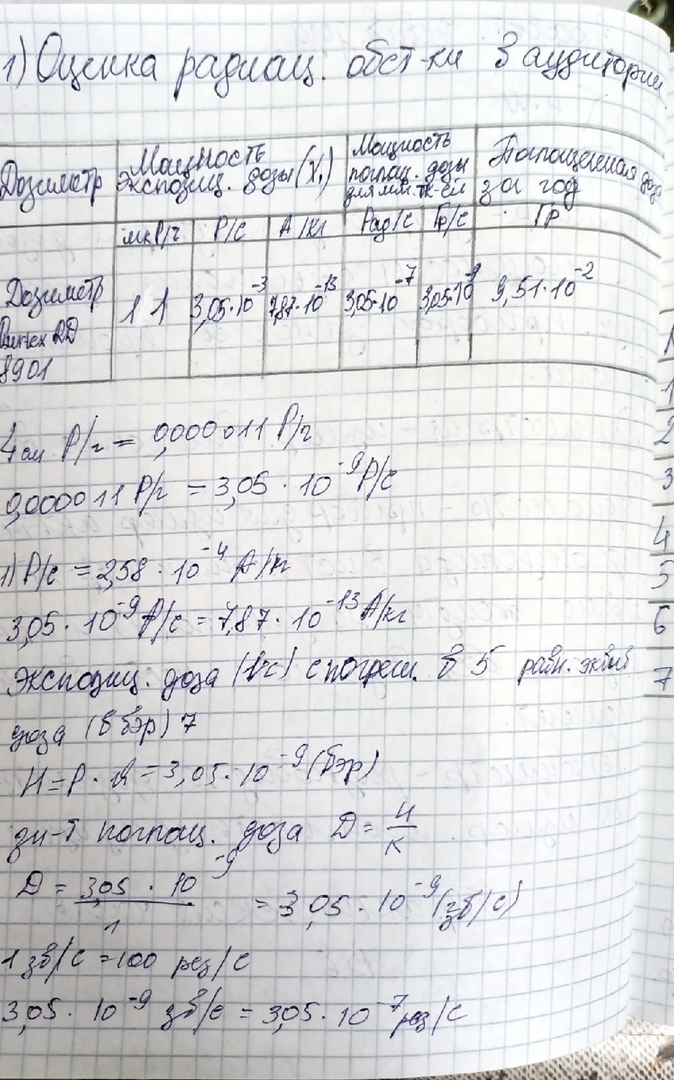 1) Оценка радиац. обст-ки в аудитории
Дозиметр Мощность экспозиц. дозы (X,) Мощность поглащ. дозы для мяг. тк-ей Поглощенная доза за год
мкР/ч Р/с А/кг Рад/с Гр/с Гр
Дозиметр RD 8901 11 3,05·10⁻³ 7,87·10⁻¹³ 3,05·10⁻⁷ 3,05·10⁻⁹ 9,51·10⁻²
Р/ч = 0,000011 Р/ч
0,000011 Р/ч = 3,05 · 10⁻⁹ Р/с
1) Р/с = 2,58 · 10⁻⁴ А/кг
3,05 · 10⁻⁹ Р/с = 7,87 · 10⁻¹³ А/кг
экспозиц. доза с погреш. в 5 равн. эквив
доза (в бэр) 7
H = 3,05 · 10⁻⁹ (бэр)
зн-т поглащ. доза D = H/K
D = 3,05 · 10⁻⁹ / 1 = 3,05 · 10⁻⁹ (зв/с)
1 зв/с = 100 рад/с
3,05 · 10⁻⁹ зв/с = 3,05 · 10⁻⁷ рад/с
1
2
3
4
5
6
7